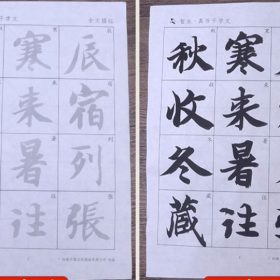 千字文
全文描临
辰宿列張
寒来暑往
智永·真书千字文
寒来暑往
秋收冬藏